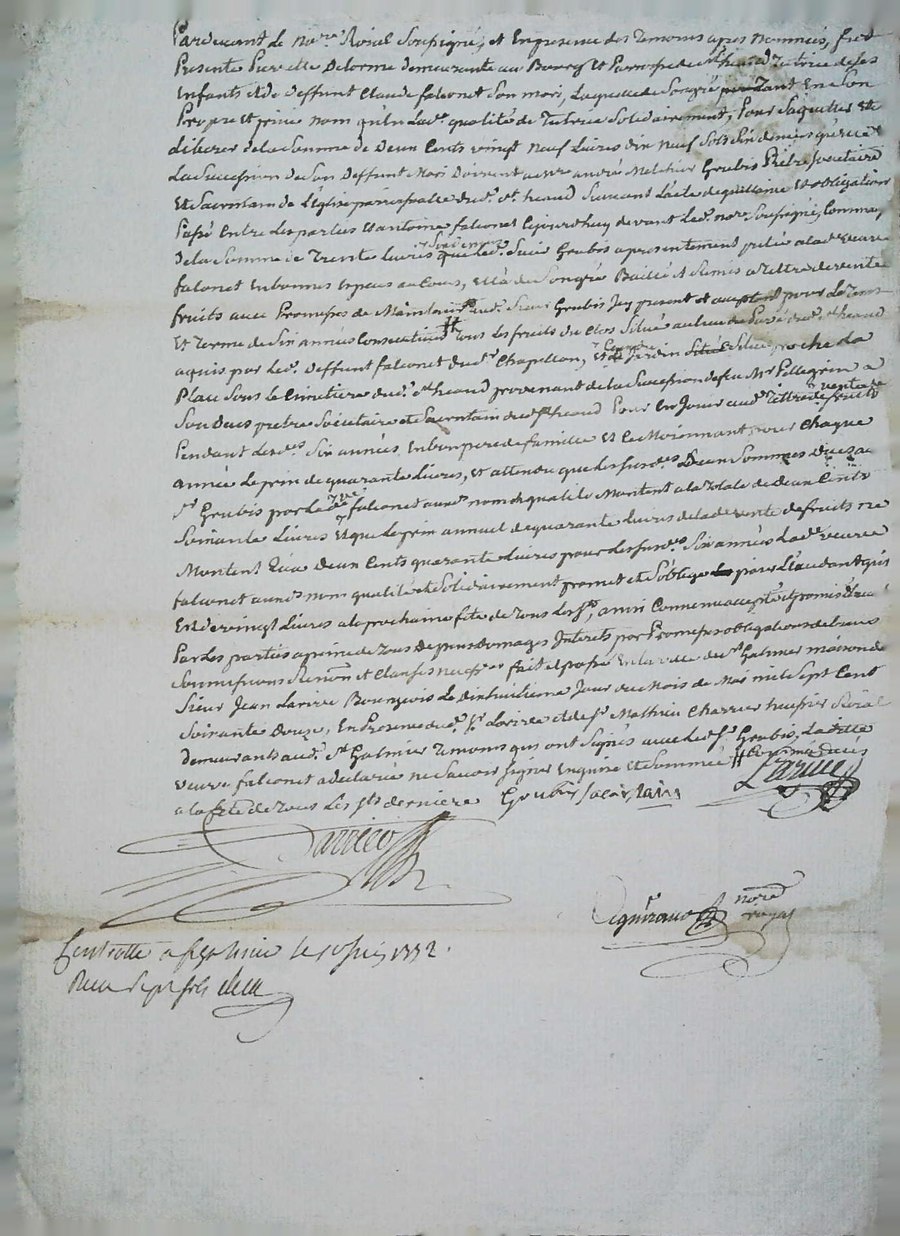 Pardevant Le No.re Roial Soussigné, et En presence des Temoins apres Nommés, fut
Presente Pierrette Delorme demeurante au Bourg et Parroisse de st heand Tutrice de ses
Enfants et de deffunt Claude falconet Son mari, Laquelle de Son gré tant En Son
Propre et privé nom qu'En Lad.e qualité de Tutrice Solidairement, Pour S'aquitter Et
Liberer de la Somme de Deux Cents vingt Neuf Livres dix neuf Sols Six deniers que
La Succession de Son Deffunt Mari Doivent a andré Melchior Groubis Prêtre Societaire
Et Sacristain de L'Eglise parroissialle dud. st heand Suivant L'acte de quittance Et obligation
Passé Entre Les parties Et antoine falconet Cejourdhuy devant Led. no.re Soussigné, Comme
de la Somme de Trente Livres que Led. Sieur Groubis a presentement pretée a lad.e veuve
falconet En bonnes Especes au Cours, Elle de Son gré Baillé et Remis a Titre de vente
fruits avec Promesses de Maintenir aud. Sieur Groubis Icy present et acceptant pour Le Tems
Et Terme de Six années Consecutives # Tous Les fruits du Clos Situé au lieu du dud. st heand
aquis par Led. Deffunt falconet du Sr Chapellon, Et de Jardin Situé proche La
Place Sous Le Cimetiere dud. st heand provenant de la Succession de feu Mr Pellegrin
Son Deus pretre Societaire et Sacristain dud. st heand Pour En Jouir aud. Tittre de vente de fruits
Pendant Lesd.es Six années En bon pere de famille Et Ce Moiennant pour Chaque
année Le prix de quarante Livres, Et attendu que Les susd.es Deux Sommes Dues au
Sr Groubis par Lad.e v.ve falconet aud. nom et qualité Montent a la Totale de Deux Cents
Soixante Livres Et que Le prix annuel de quarante Livres de lad.e vente de fruits ne
Montent Qu'a deux Cents quarante Livres pour Les susd.es Six années Lad.e veuve
falconet aud. nom qualité et Solidairement promet et s'oblige paier L'Excedant
Est de vingt Livres a la prochaine fete de Tous Les Sts, ainsi Convenu accepté et promis
Par Les parties a peine de Tous depens Domages Interets par Promesses obligations de biens
Soumissions Renon et Clauses fait et passé En la ville de st Galmier maison de
Sieur Jean Larive Bourgeois Le dixhuitieme Jour du Mois de Mai mil Sept Cent
Soixante Douze, En Presence dud. Sr Larive et de Sr Mathieu Charrier huissier Roial
demeurants aud. St Galmier Temoins qui ont Signés avec Led. Sr Groubis, Ladite
veuve falconet a declaré ne Savoir signer Enquise Et Sommée #
a la fete de Tous Les Sts derniere Groubis Larive
Charrier
no.re royal
Controllé a st Galmier le 1772.
Recu Sept sols